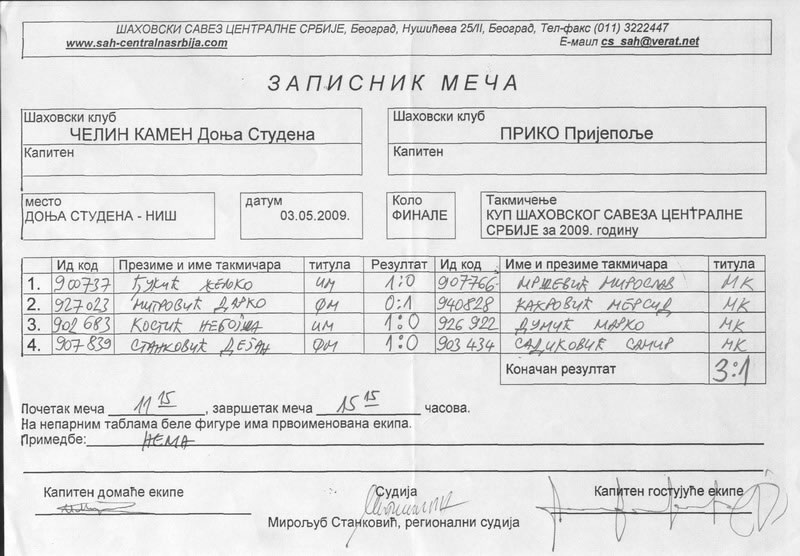 ШАХОВСКИ САВЕЗ ЦЕНТРАЛНЕ СРБИЈЕ, Београд, Нушићева 25/II, Београд, Тел-факс (011) 3222447
www.sah-centralnasrbija.com Е-маил cs_sah@verat.net
ЗАПИСНИК МЕЧА
Шаховски клуб
ЧЕЛИН КАМЕН Доња Студена
Капитен
Шаховски клуб
ПРИКО Пријепоље
Капитен
место
ДОЊА СТУДЕНА - НИШ
датум
03.05.2009.
Коло
ФИНАЛЕ
Такмичење
КУП ШАХОВСКОГ САВЕЗА ЦЕНТРАЛНЕ
СРБИЈЕ за 2009. годину
Ид код Презиме и име такмичара титула Резултат Ид код Име и презиме такмичара титула
1. 900737 ИМ 1:0 907766 МРШЕВИЋ МИРОСЛАВ МК
2. 927023 МИТРОВИЋ ДАРКО ФМ 0:1 940828 КАКРОВИЋ МЕРСИД МК
3. 902683 КОСТИЋ НЕБОЈША ИМ 1:0 926922 ДУМИЋ МАРКО МК
4. 907839 СТАНКОВИЋ ДЕЈАН ФМ 1:0 903434 САДИКОВИЋ САМИР МК
Коначан резултат 3:1
Почетак меча 11 15, завршетак меча 15 15 часова.
На непарним таблама беле фигуре има првоименована екипа.
Примедбе: НЕМА
Капитен домаће екипе Судија Капитен гостујуће екипе
Мирољуб Станковић, регионални судија